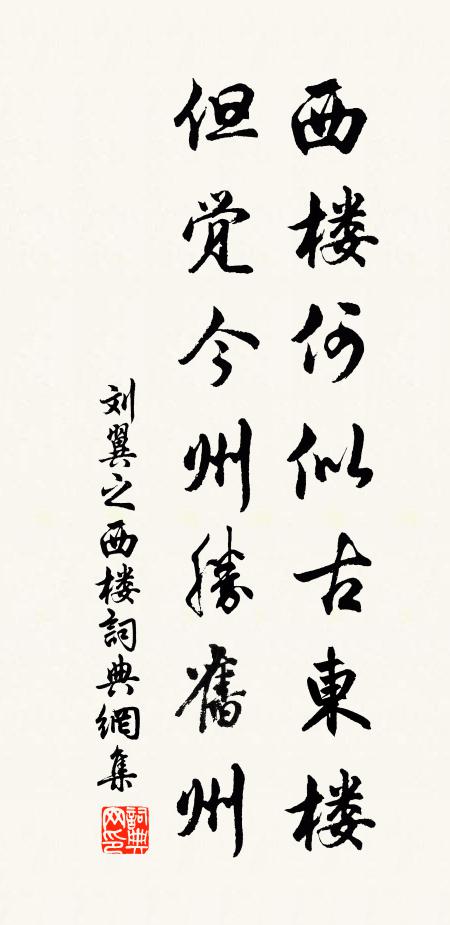 西楼何似古東楼
但覚今州勝舊州
刘翼之西楼詞典網集
詞典网印